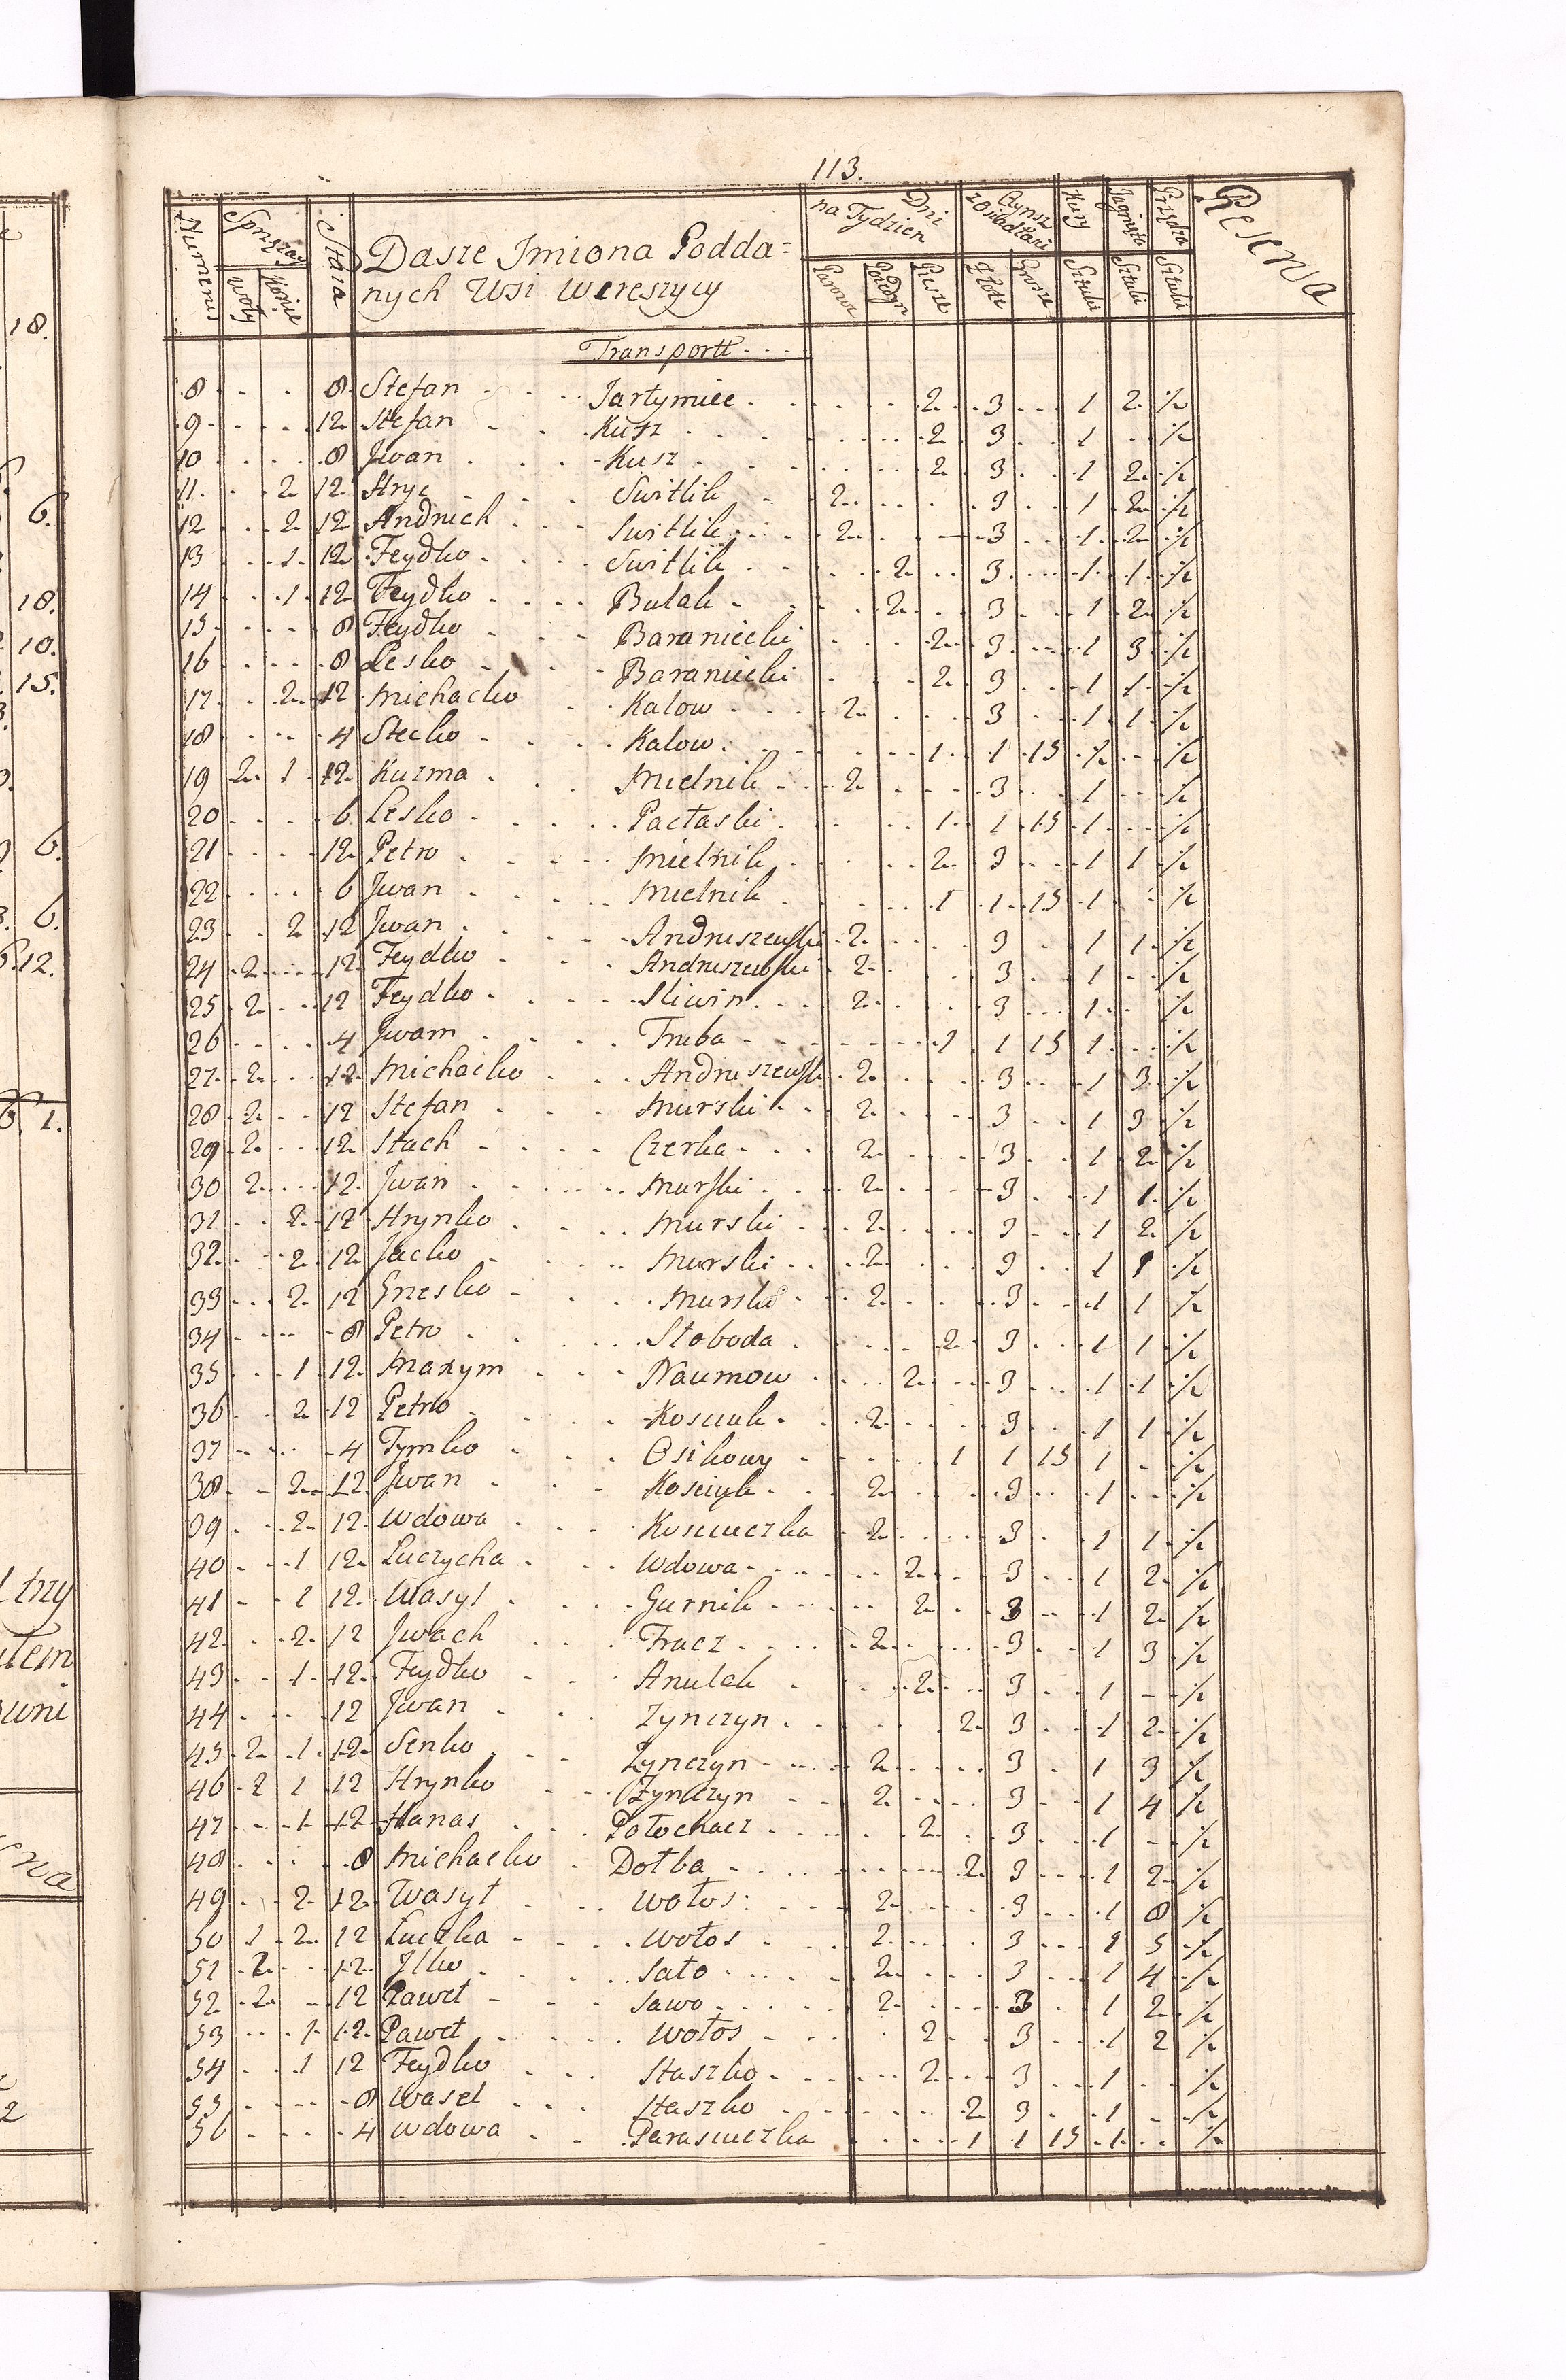 113.
Numerus Sprzęzay Staia Dasze Imiona Podda= Dni na Tydzien Czynsz zosiadłosci Kury Jagnięta Przędza Reserva
Woły Konie nych Wsi Wereszycy Parowe Pojedyn Piesze Złote Grosze Sztuki Sztuki Sztuki
Transportt
8 8 Stefan Jartymiec 2 3 1 2 ½
9 12 Stefan Kusz 2 3 1 ½
10 8 Jwan Kusz 2 3 1 2 ½
11. 2 12 Hryc Switlik 2 3 1 2 ½
12 2 12 Andruch Switlik 2 3 1 2 ½
13 1 12 Feydko Switlik 2 3 1 1 ½
14 1 12 Feydko Bulak 2 3 1 2 ½
15 8 Feydko Baraniecki 2 3 1 3 ½
16 8 Lesko Baraniecki 2 3 1 1 ½
17 2 12 Michaćko Kalow 2 3 1 1 ½
18 4 Stecko Kalow 1 1 15 ½ ½
19 2 1 12 Kuzma Mielnik 2 3 1 ½
20 6 Lesko Pactaski 1 1 15 1 ½
21 12 Petro Mielnik 2 3 1 1 ½
22 6 Jwan Mielnik 1 1 15 1 ½
23 2 12 Jwan Andruszewski 2 3 1 1 ½
24 2 12 Feydko Andruszewski 2 3 1 ½
25 2 12 Feydko Sliwin 2 3 1 ½
26 4 Jwam Truba 1 1 15 1 ½
27 2 12 Michacko Andruszewsk 2 3 1 3 ½
28 2 12 Stefan Murski 2 3 1 3 ½
29 2 12 Stach Czerka 2 3 1 2 ½
30 2 12 Jwan Murski 2 3 1 1 ½
31 2 12 Hrynko Murski 2 3 1 2 ½
32 2 12 Jacko Murski 2 3 1 1 ½
33 2 12 Grzesko Murski 2 3 1 1 ½
34 8 Petro Słoboda 2 3 1 1 ½
35 1 12 Maxym Naumow 2 3 1 1 ½
36 2 12 Petro Kosciuk 2 3 1 1 ½
37 4 Tymko Osikowy 1 1 15 1 ½
38 2 12 Jwan Kosciuk 2 3 1 ½
39 2 12 Wdowa Kosciuczka 2 3 1 1 ½
40 1 12 Luczycha Wdowa 2 3 1 2 ½
41 1 12 Wasyl Gurnik 2 3 1 2 ½
42 2 12 Jwach Tracz 2 3 1 3 ½
43 1 12 Feydko Anulak 2 3 1 ½
44 12 Jwan Zynczyn 2 3 1 2 ½
45 2 1 12 Senko Zynczyn 2 3 1 3 ½
46 2 1 12 Hrynko Zynczyn 2 3 1 4 ½
47 1 12 Hanas Połochacz 2 3 1 ½
48 8 Michacko Dołba 2 3 1 2 ½
49 2 12 Wasył Wołos 2 3 1 8 ½
50 1 2 12 Łuczka Wołos 2 3 1 5 ½
51 2 12 Jlko Sało 2 3 1 4 ½
52 2 12 Paweł Sawo 2 3 1 2 ½
53 1 12 Paweł Wołos 2 3 1 2 ½
54 1 12 Feydko Staszko 2 3 1 ½
55 8 Wasel Staszko 2 3 1 ½
56 4 Wdowa Parasiuczka 1 1 15 1 ½